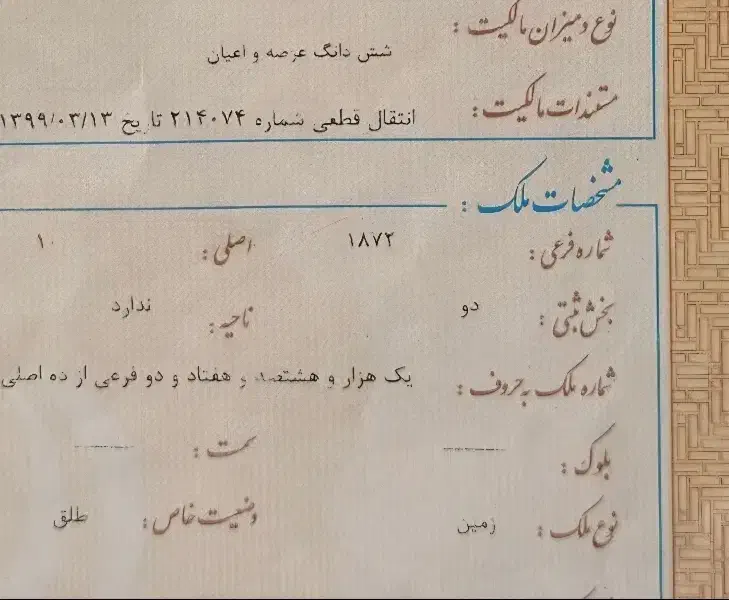 نوع و میزان مالکیت :
شش دانگ عرصه و اعیان
مستندات مالکیت :
انتقال قطعی شماره ۲۱۴۰۷۴ تاریخ ۱۳۹۹/۰۳/۱۳
مشخصات ملک :
شماره فرعی : ۱۸۷۲ اصلی : ۱۰
بخش ثبتی : دو ناحیه : ندارد
شماره ملک به حروف : یک هزار و هشتصد و هفتاد و دو فرعی از ده اصلی
بلوک : ---------- سمت : ----------
نوع ملک : زمین وضعیت خاص : طلق